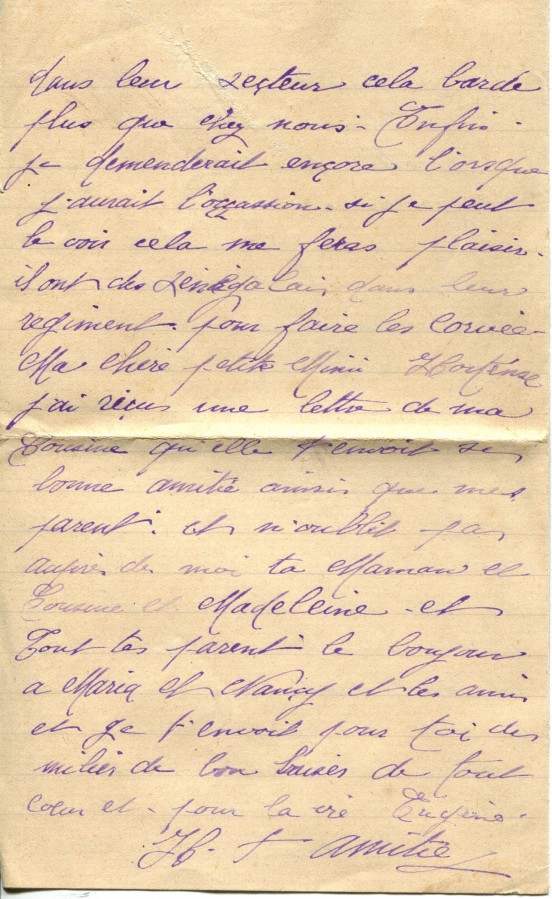 dans leur secteur cela barde
plus que chez nous - Enfin -
je demenderait encore l'orsque
j'aurait l'occassion. si je peut
le voir cela me feras plaisir.
il ont des Sénégalais dans leur
regiment. pour faire les Corvée -
Ma chère petite Mimi Hortense
j'ai reçus une lettre de ma
Cousine qu'elle t'envoit ses
bonne amitié ainsis que mes
parent. et n'oublit pas
auprès de moi ta Maman et
Cousine et Madeleine - et
Tout tes parent le bonjour
a Maria et Nancy et les amis
et je t'envoit pour toi des
milier de bon baiser de tout
cœur et - pour la vie Eugène -
H. + amitie